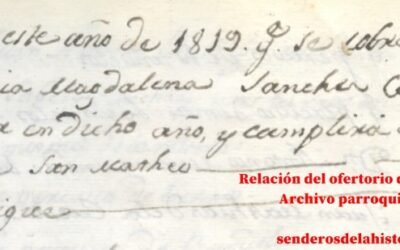 este año de 1819. q̃. se cobra
ia Magdalena Sanchez
en dicho año, y cumplirá
San Matheo
Relación del ofertorio d
Archivo parroquia
senderosdelahisto